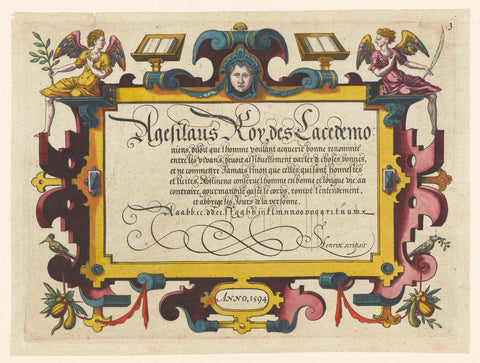 3
Agesilaus Roy, des Lacedemo:
niens, disoit que l'homme voulant acquerir bonne renommée
entre les vivans, devoit assiduellement parler de choses bonnes,
et ne commettre Jamais sinon que celles, qui sont honnestes
et licites. Abstinence conserve l'homme en bonne et longue vie: au
contraire, gourmandise gaste le corps, rompt l'entendement,
et abbrege les Jours de la personne.
ANNO, 1594